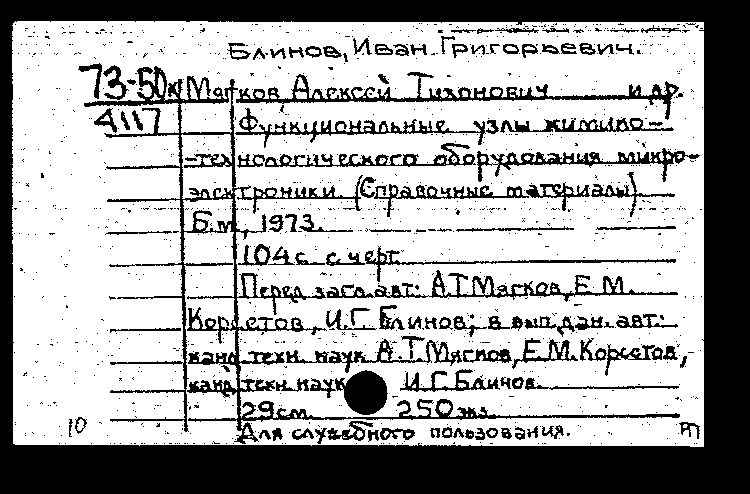 Блинов, Иван Григорьевич.
73-50к Мягков Алексей Тихонович и др.
4117 Функциональные узлы химико-
-технологического оборудования микро-
электроники. (Справочные материалы)
Б.м., 1973.
104 с. с черт.
Перед загл. авт: А.Т.Мягков, Е.М.
Корсетов, И.Г. Блинов; в вып.дан. авт:
канд техн. наук А.Т.Мягков, Е.М.Корсетов,
канд. техн. наук И.Г.Блинов.
29см. 250 экз.
10 Для служебного пользования. РП